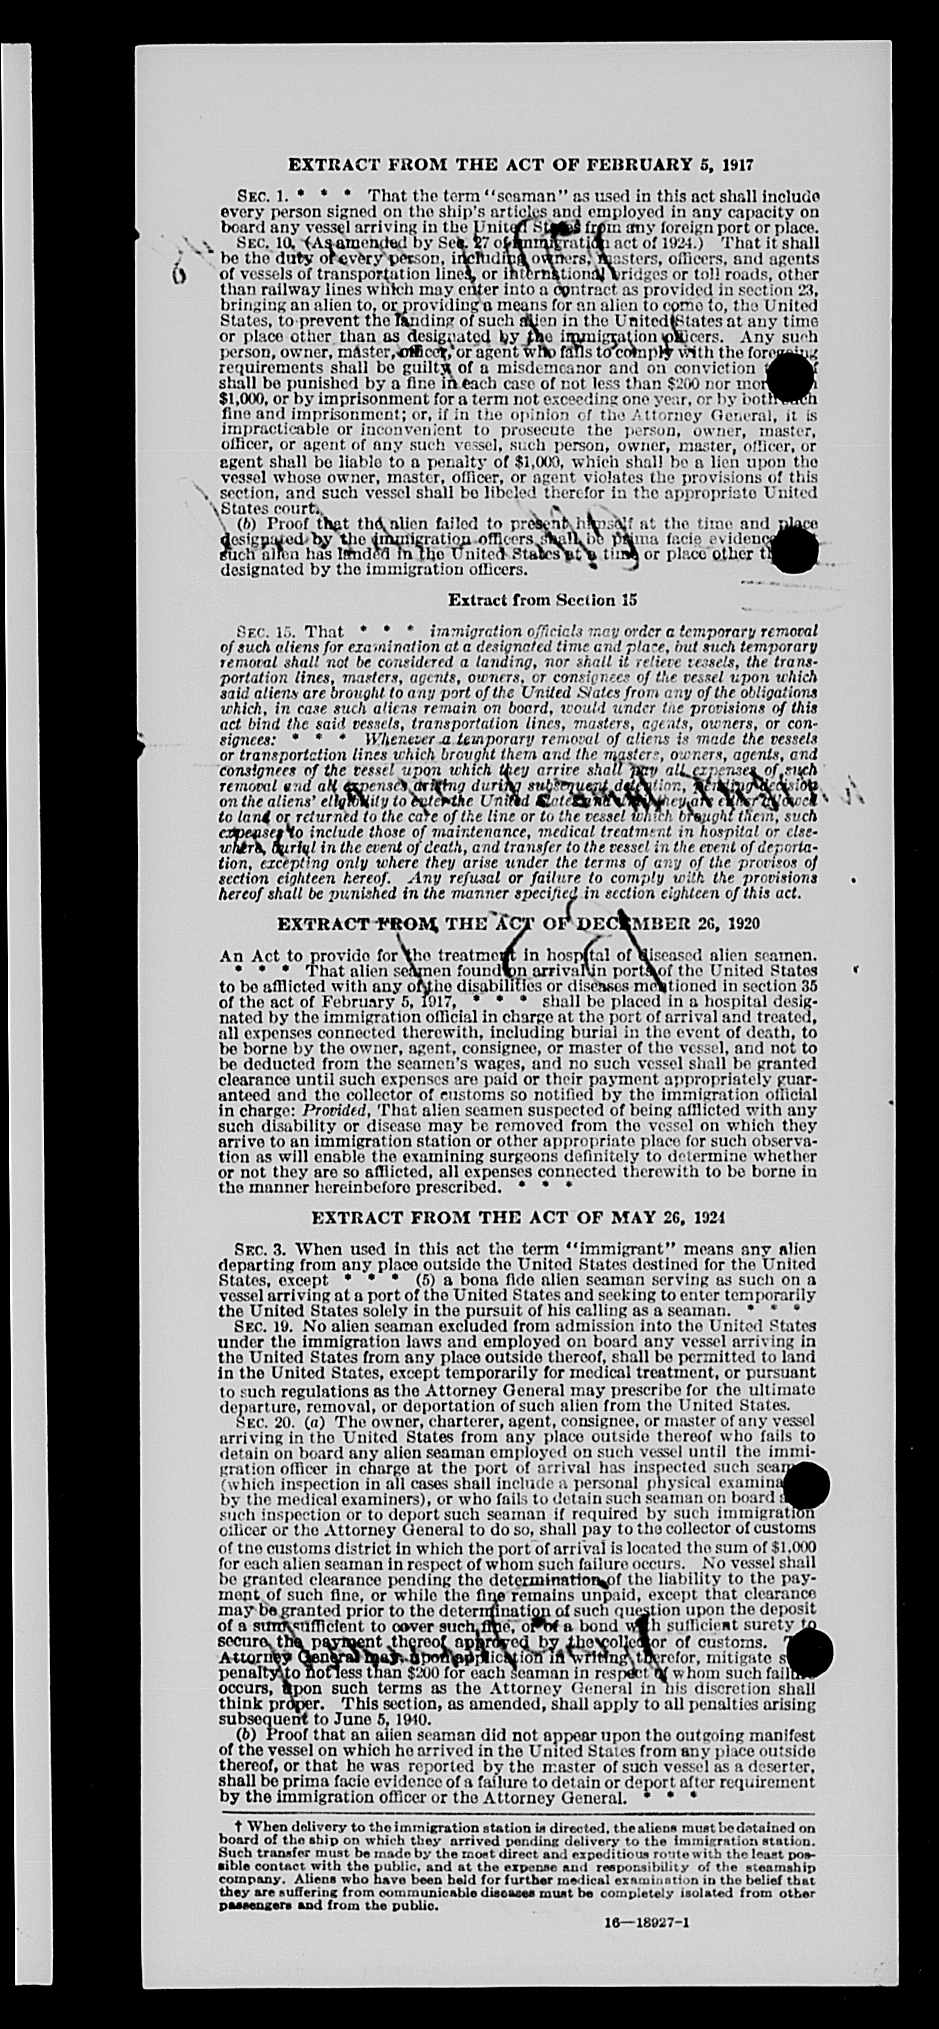 EXTRACT FROM THE ACT OF FEBRUARY 5, 1917
SEC. 1. * * * That the term "seaman" as used in this act shall include
every person signed on the ship's articles and employed in any capacity on
board any vessel arriving in the United States from any foreign port or place.
SEC. 10. (As amended by Sec. 27 of immigration act of 1924.) That it shall
be the duty of every person, including owners, masters, officers, and agents
of vessels of transportation lines, or international bridges or toll roads, other
than railway lines which may enter into a contract as provided in section 23,
bringing an alien to, or providing a means for an alien to come to, the United
States, to prevent the landing of such alien in the United States at any time
or place other than as designated by the immigration officers. Any such
person, owner, master, officer, or agent who fails to comply with the foregoing
requirements shall be guilty of a misdemeanor and on conviction
shall be punished by a fine in each case of not less than $200 nor mor
$1,000, or by imprisonment for a term not exceeding one year, or by both such
fine and imprisonment; or, if in the opinion of the Attorney General, it is
impracticable or inconvenient to prosecute the person, owner, master,
officer, or agent of any such vessel, such person, owner, master, officer, or
agent shall be liable to a penalty of $1,000, which shall be a lien upon the
vessel whose owner, master, officer, or agent violates the provisions of this
section, and such vessel shall be libeled therefor in the appropriate United
States court.
(b) Proof that the alien failed to present himself at the time and place
designated by the immigration officers shall be prima facie evidence
such alien has landed in the United States at a time or place other
designated by the immigration officers.
Extract from Section 15
SEC. 15. That * * * immigration officials may order a temporary removal
of such aliens for examination at a designated time and place, but such temporary
removal shall not be considered a landing, nor shall it relieve vessels, the trans-
portation lines, masters, agents, owners, or consignees of the vessel upon which
said aliens are brought to any port of the United States from any of the obligations
which, in case such aliens remain on board, would under the provisions of this
act bind the said vessels, transportation lines, masters, agents, owners, or con-
signees: * * * Whenever a temporary removal of aliens is made the vessels
or transportation lines which brought them and the masters, owners, agents, and
consignees of the vessel upon which they arrive shall pay all expenses of such
removal and all expenses arising during subsequent detention, pending decision
on the aliens' eligibility to enter the United States and until they are either allowed
to land or returned to the care of the line or to the vessel which brought them, such
expenses to include those of maintenance, medical treatment in hospital or else-
where, burial in the event of death, and transfer to the vessel in the event of deporta-
tion, excepting only where they arise under the terms of any of the provisos of
section eighteen hereof. Any refusal or failure to comply with the provisions
hereof shall be punished in the manner specified in section eighteen of this act.
EXTRACT FROM THE ACT OF DECEMBER 26, 1920
An Act to provide for the treatment in hospital of diseased alien seamen.
* * * That alien seamen found on arrival in ports of the United States
to be afflicted with any of the disabilities or diseases mentioned in section 35
of the act of February 5, 1917, * * * shall be placed in a hospital desig-
nated by the immigration official in charge at the port of arrival and treated,
all expenses connected therewith, including burial in the event of death, to
be borne by the owner, agent, consignee, or master of the vessel, and not to
be deducted from the seamen's wages, and no such vessel shall be granted
clearance until such expenses are paid or their payment appropriately guar-
anteed and the collector of customs so notified by the immigration official
in charge: Provided, That alien seamen suspected of being afflicted with any
such disability or disease may be removed from the vessel on which they
arrive to an immigration station or other appropriate place for such observa-
tion as will enable the examining surgeons definitely to determine whether
or not they are so afflicted, all expenses connected therewith to be borne in
the manner hereinbefore prescribed. * * *
EXTRACT FROM THE ACT OF MAY 26, 1924
SEC. 3. When used in this act the term "immigrant" means any alien
departing from any place outside the United States destined for the United
States, except * * * (5) a bona fide alien seaman serving as such on a
vessel arriving at a port of the United States and seeking to enter temporarily
the United States solely in the pursuit of his calling as a seaman. * * *
SEC. 19. No alien seaman excluded from admission into the United States
under the immigration laws and employed on board any vessel arriving in
the United States from any place outside thereof, shall be permitted to land
in the United States, except temporarily for medical treatment, or pursuant
to such regulations as the Attorney General may prescribe for the ultimate
departure, removal, or deportation of such alien from the United States.
SEC. 20. (a) The owner, charterer, agent, consignee, or master of any vessel
arriving in the United States from any place outside thereof who fails to
detain on board any alien seaman employed on such vessel until the immi-
gration officer in charge at the port of arrival has inspected such seam
(which inspection in all cases shall include a personal physical examina
by the medical examiners), or who fails to detain such seaman on board
such inspection or to deport such seaman if required by such immigration
officer or the Attorney General to do so, shall pay to the collector of customs
of the customs district in which the port of arrival is located the sum of $1,000
for each alien seaman in respect of whom such failure occurs. No vessel shall
be granted clearance pending the determination of the liability to the pay-
ment of such fine, or while the fine remains unpaid, except that clearance
may be granted prior to the determination of such question upon the deposit
of a sum sufficient to cover such fine, or of a bond with sufficient surety to
secure the payment thereof approved by the collector of customs.
Attorney General may, upon application in writing, therefor, mitigate s
penalty to not less than $200 for each seaman in respect of whom such failure
occurs, upon such terms as the Attorney General in his discretion shall
think proper. This section, as amended, shall apply to all penalties arising
subsequent to June 5, 1940.
(b) Proof that an alien seaman did not appear upon the outgoing manifest
of the vessel on which he arrived in the United States from any place outside
thereof, or that he was reported by the master of such vessel as a deserter,
shall be prima facie evidence of a failure to detain or deport after requirement
by the immigration officer or the Attorney General. * * *
† When delivery to the immigration station is directed, the aliens must be detained on
board of the ship on which they arrived pending delivery to the immigration station.
Such transfer must be made by the most direct and expeditious route with the least pos-
sible contact with the public, and at the expense and responsibility of the steamship
company. Aliens who have been held for further medical examination in the belief that
they are suffering from communicable diseases must be completely isolated from other
passengers and from the public.
16—18927-1